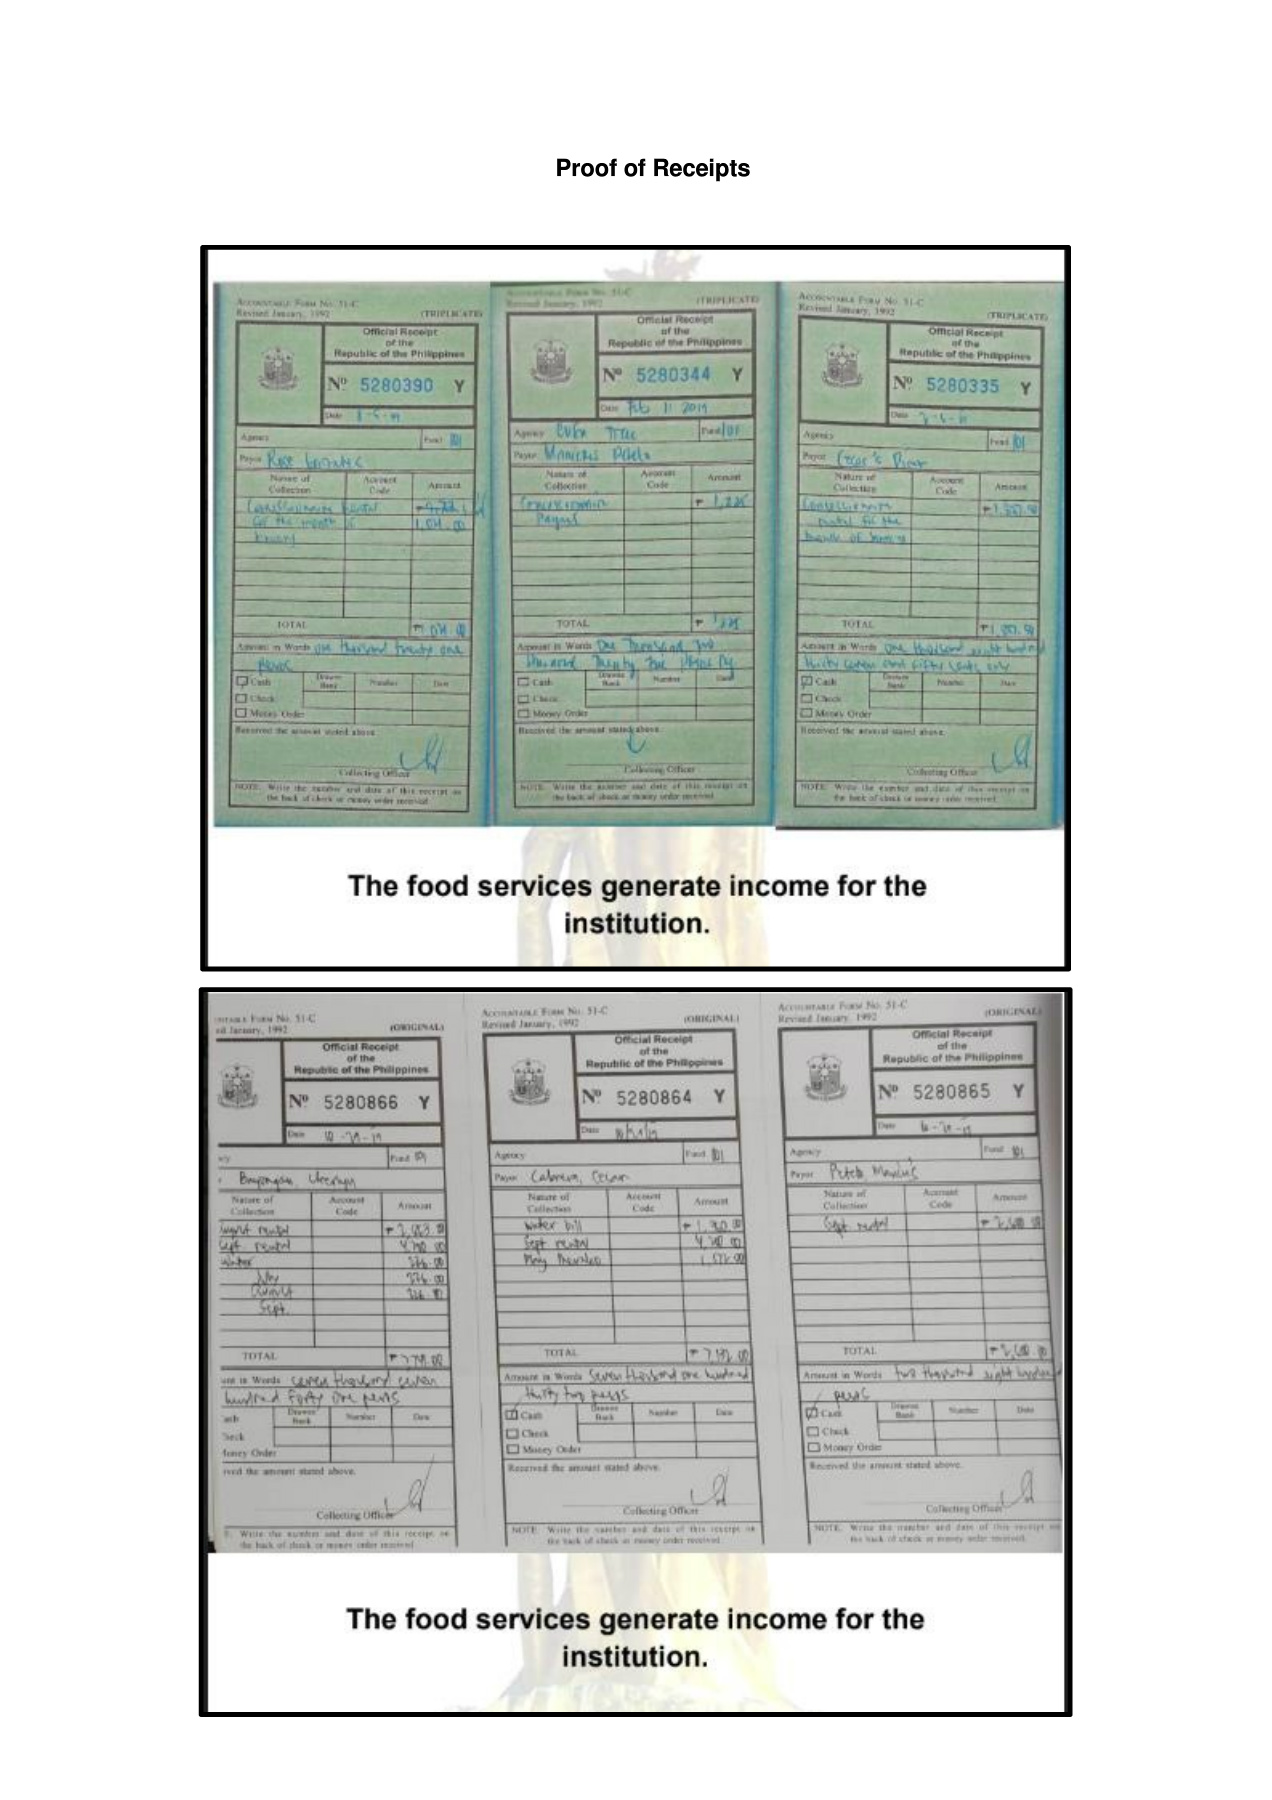 Proof of Receipts
ACCOUNTABLE FORM No. 51-C
Revised January, 1992 (TRIPLICATE)
Official Receipt
of the
Republic of the Philippines
Nº 5280390 Y
Date
Agency Fund 101
Payor Rose
Nature of Collection Account Code Amount
Concessionaire rental
for the month of 1,021.00
TOTAL
Amount in Words one thousand twenty one
pesos
Cash Drawee Bank Number Date
Check
Money Order
Received the amount stated above.
Collecting Officer
NOTE: Write the number and date of this receipt on
the back of check or money order received.
ACCOUNTABLE FORM No. 51-C
Revised January, 1992 (TRIPLICATE)
Official Receipt
of the
Republic of the Philippines
Nº 5280344 Y
Date Feb 11 2019
Agency Fund 101
Payor
Nature of Collection Account Code Amount
₱ 1,225
TOTAL ₱ 1,225
Amount in Words One Thousand Two
Hundred Twenty Five Pesos Only
Cash Drawee Bank Number Date
Check
Money Order
Received the amount stated above.
Collecting Officer
NOTE: Write the number and date of this receipt on
the back of check or money order received.
ACCOUNTABLE FORM No. 51-C
Revised January, 1992 (TRIPLICATE)
Official Receipt
of the
Republic of the Philippines
Nº 5280335 Y
Date
Agency Fund 101
Payor
Nature of Collection Account Code Amount
Concessionaire ₱1,837.50
rental for the
month of
TOTAL ₱1,837.50
Amount in Words one thousand eight hundred
thirty seven and fifty cents only
Cash Drawee Bank Number Date
Check
Money Order
Received the amount stated above.
Collecting Officer
NOTE: Write the number and date of this receipt on
the back of check or money order received.
The food services generate income for the
institution.
No. 51-C
January, 1992 (ORIGINAL)
Official Receipt
of the
Republic of the Philippines
Nº 5280866 Y
Date
Fund 101
Nature of Collection Account Code Amount
rental
Sept. rental
water
August
Sept.
TOTAL
in Words seven thousand seven
hundred forty one pesos
Drawee Bank Number Date
Money Order
the amount stated above.
Collecting Officer
Write the number and date of this receipt on
the back of check or money order received.
ACCOUNTABLE FORM No. 51-C
Revised January, 1992 (ORIGINAL)
Official Receipt
of the
Republic of the Philippines
Nº 5280864 Y
Date
Agency Fund 101
Payor Cabrera, Cesar
Nature of Collection Account Code Amount
water bill
Sept rental
May
TOTAL ₱ 7,132.00
Amount in Words seven thousand one hundred
thirty two pesos
Cash Drawee Bank Number Date
Check
Money Order
Received the amount stated above.
Collecting Officer
NOTE: Write the number and date of this receipt on
the back of check or money order received.
ACCOUNTABLE FORM No. 51-C
Revised January, 1992 (ORIGINAL)
Official Receipt
of the
Republic of the Philippines
Nº 5280865 Y
Date
Agency Fund 101
Payor
Nature of Collection Account Code Amount
Sept rental
TOTAL
Amount in Words two thousand eight hundred
pesos
Cash Drawee Bank Number Date
Check
Money Order
Received the amount stated above.
Collecting Officer
NOTE: Write the number and date of this receipt on
the back of check or money order received.
The food services generate income for the
institution.